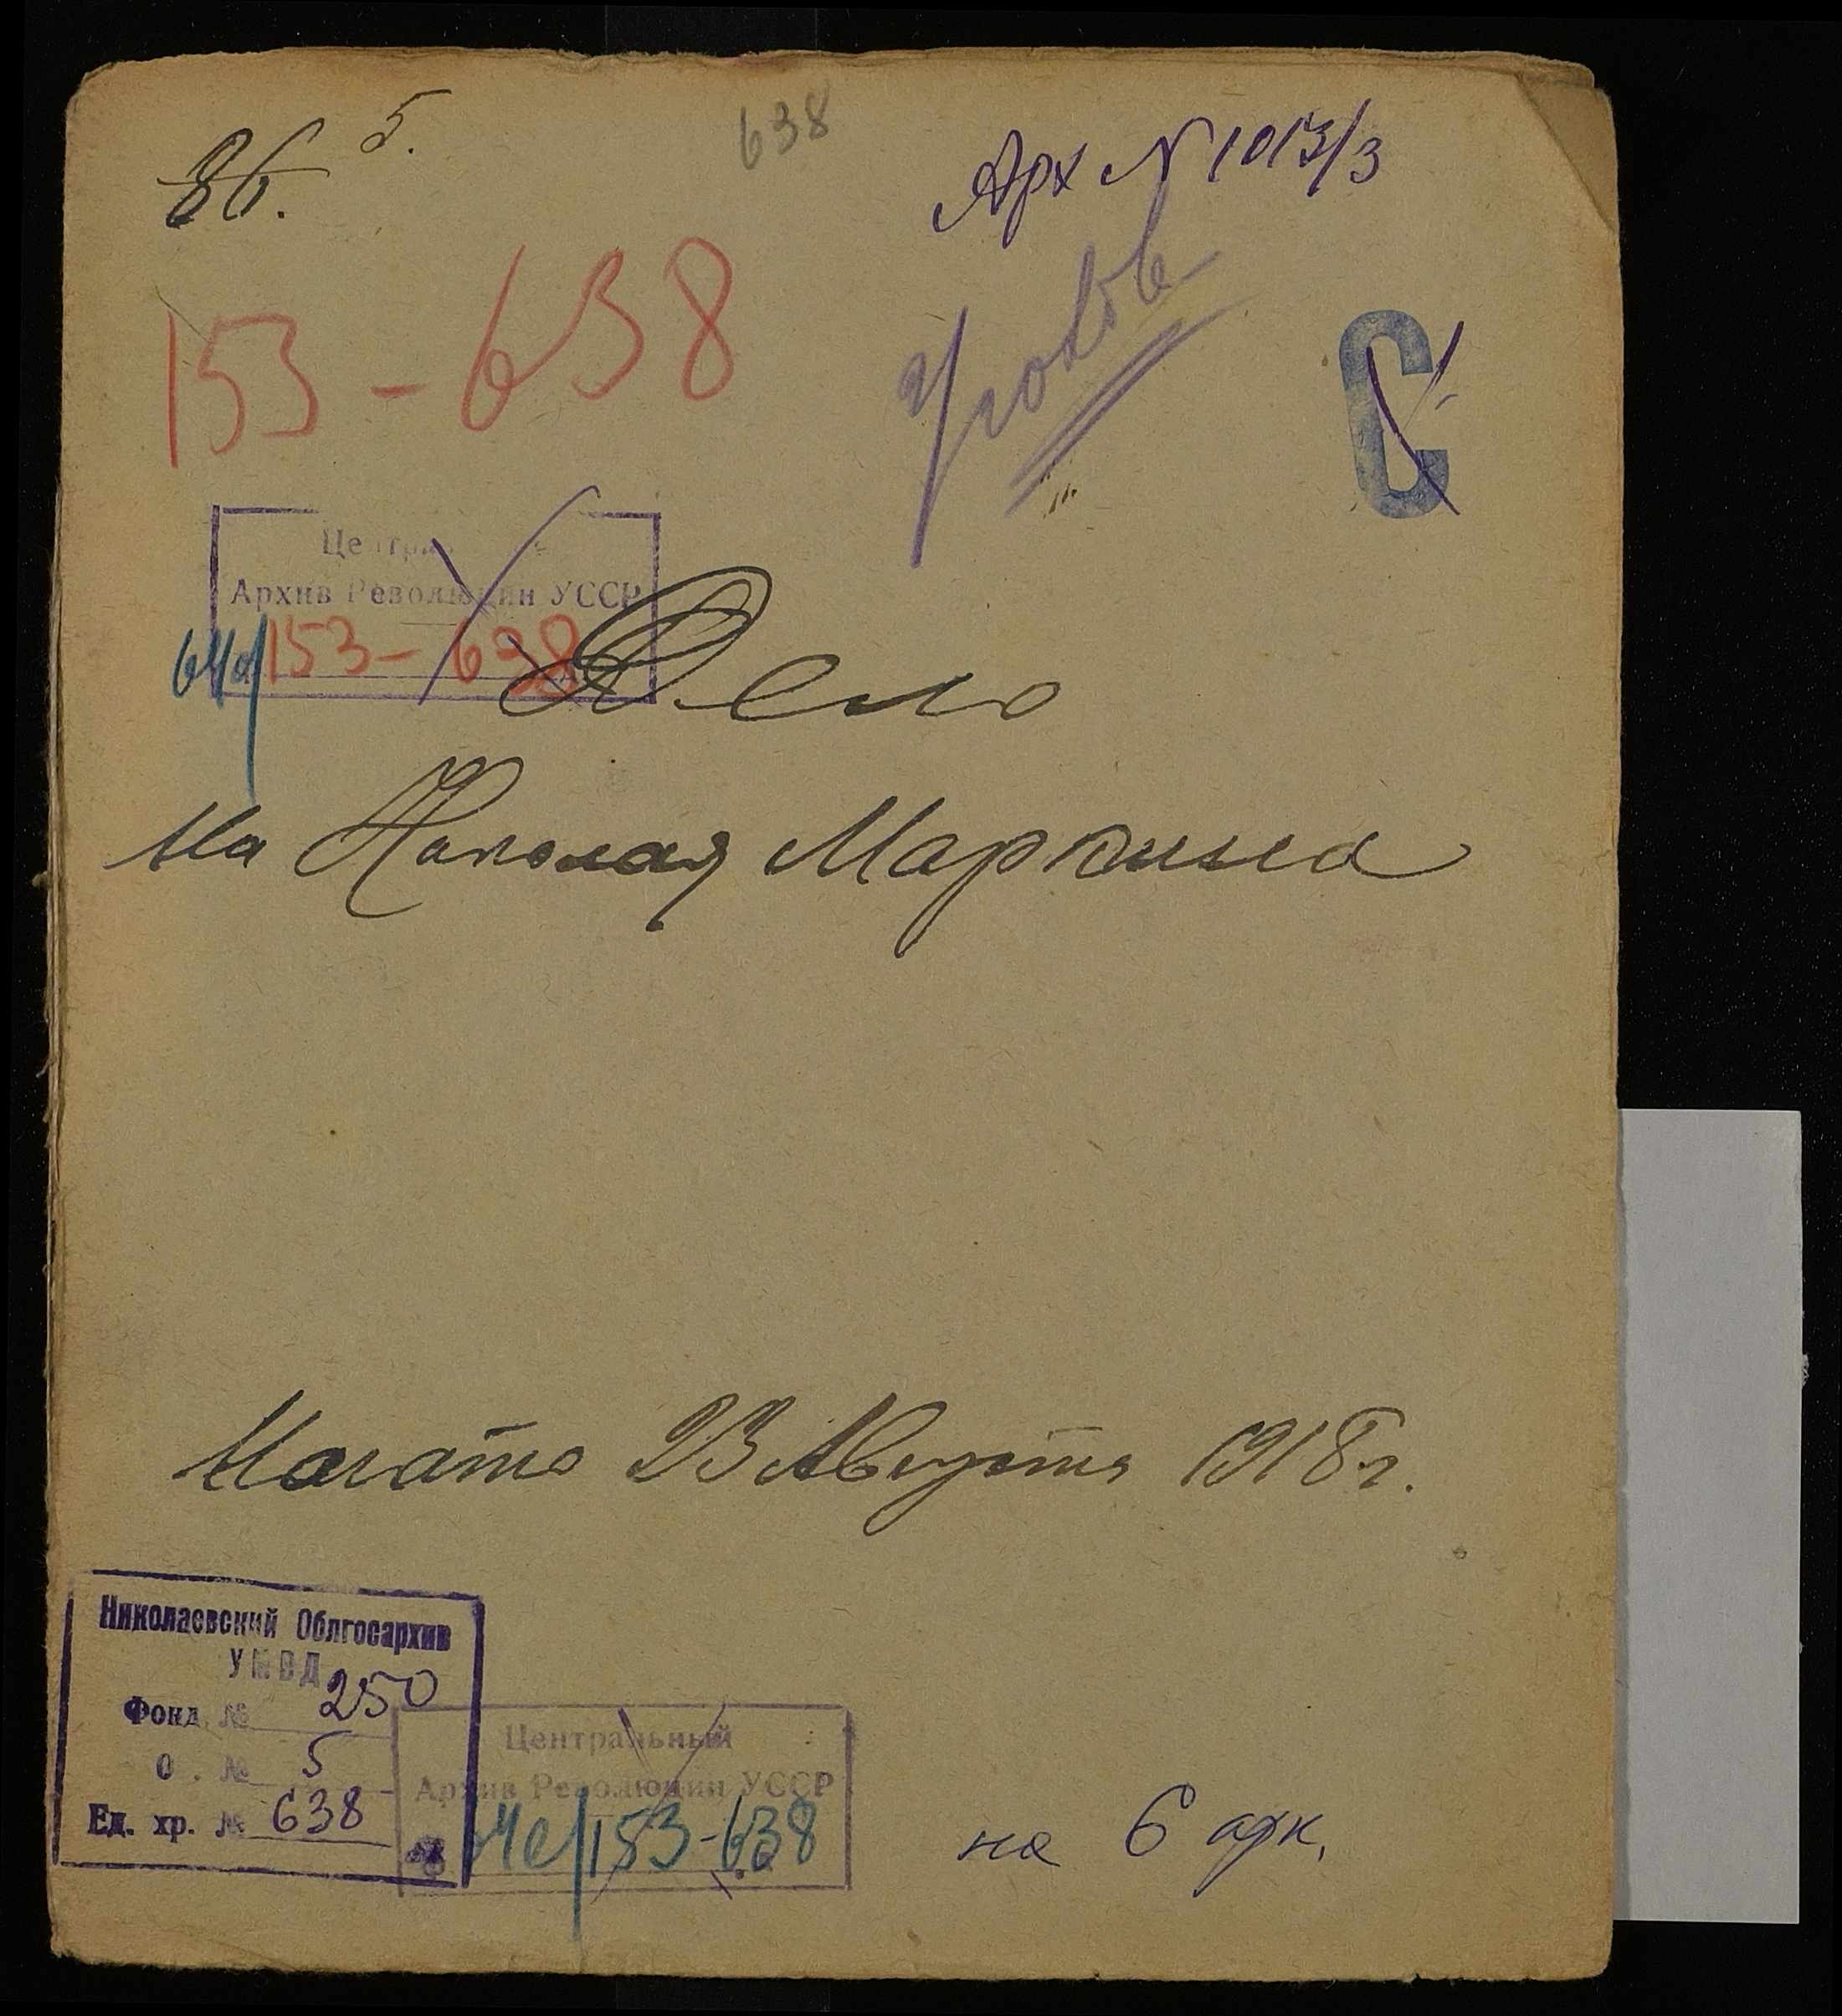 5.
36.
638
Арх N 1013/3
153-638
С
Архив Революции УССР
153-638
Дело
На Николая Маркина
Начато 23 Августа 1918 г.
Николаевский Облгосархив
УМВД
Фонд № 250
О. № 5
Ед. хр. № 638
Центральный
Архив Революции УССР
153-638
на 6 арк.